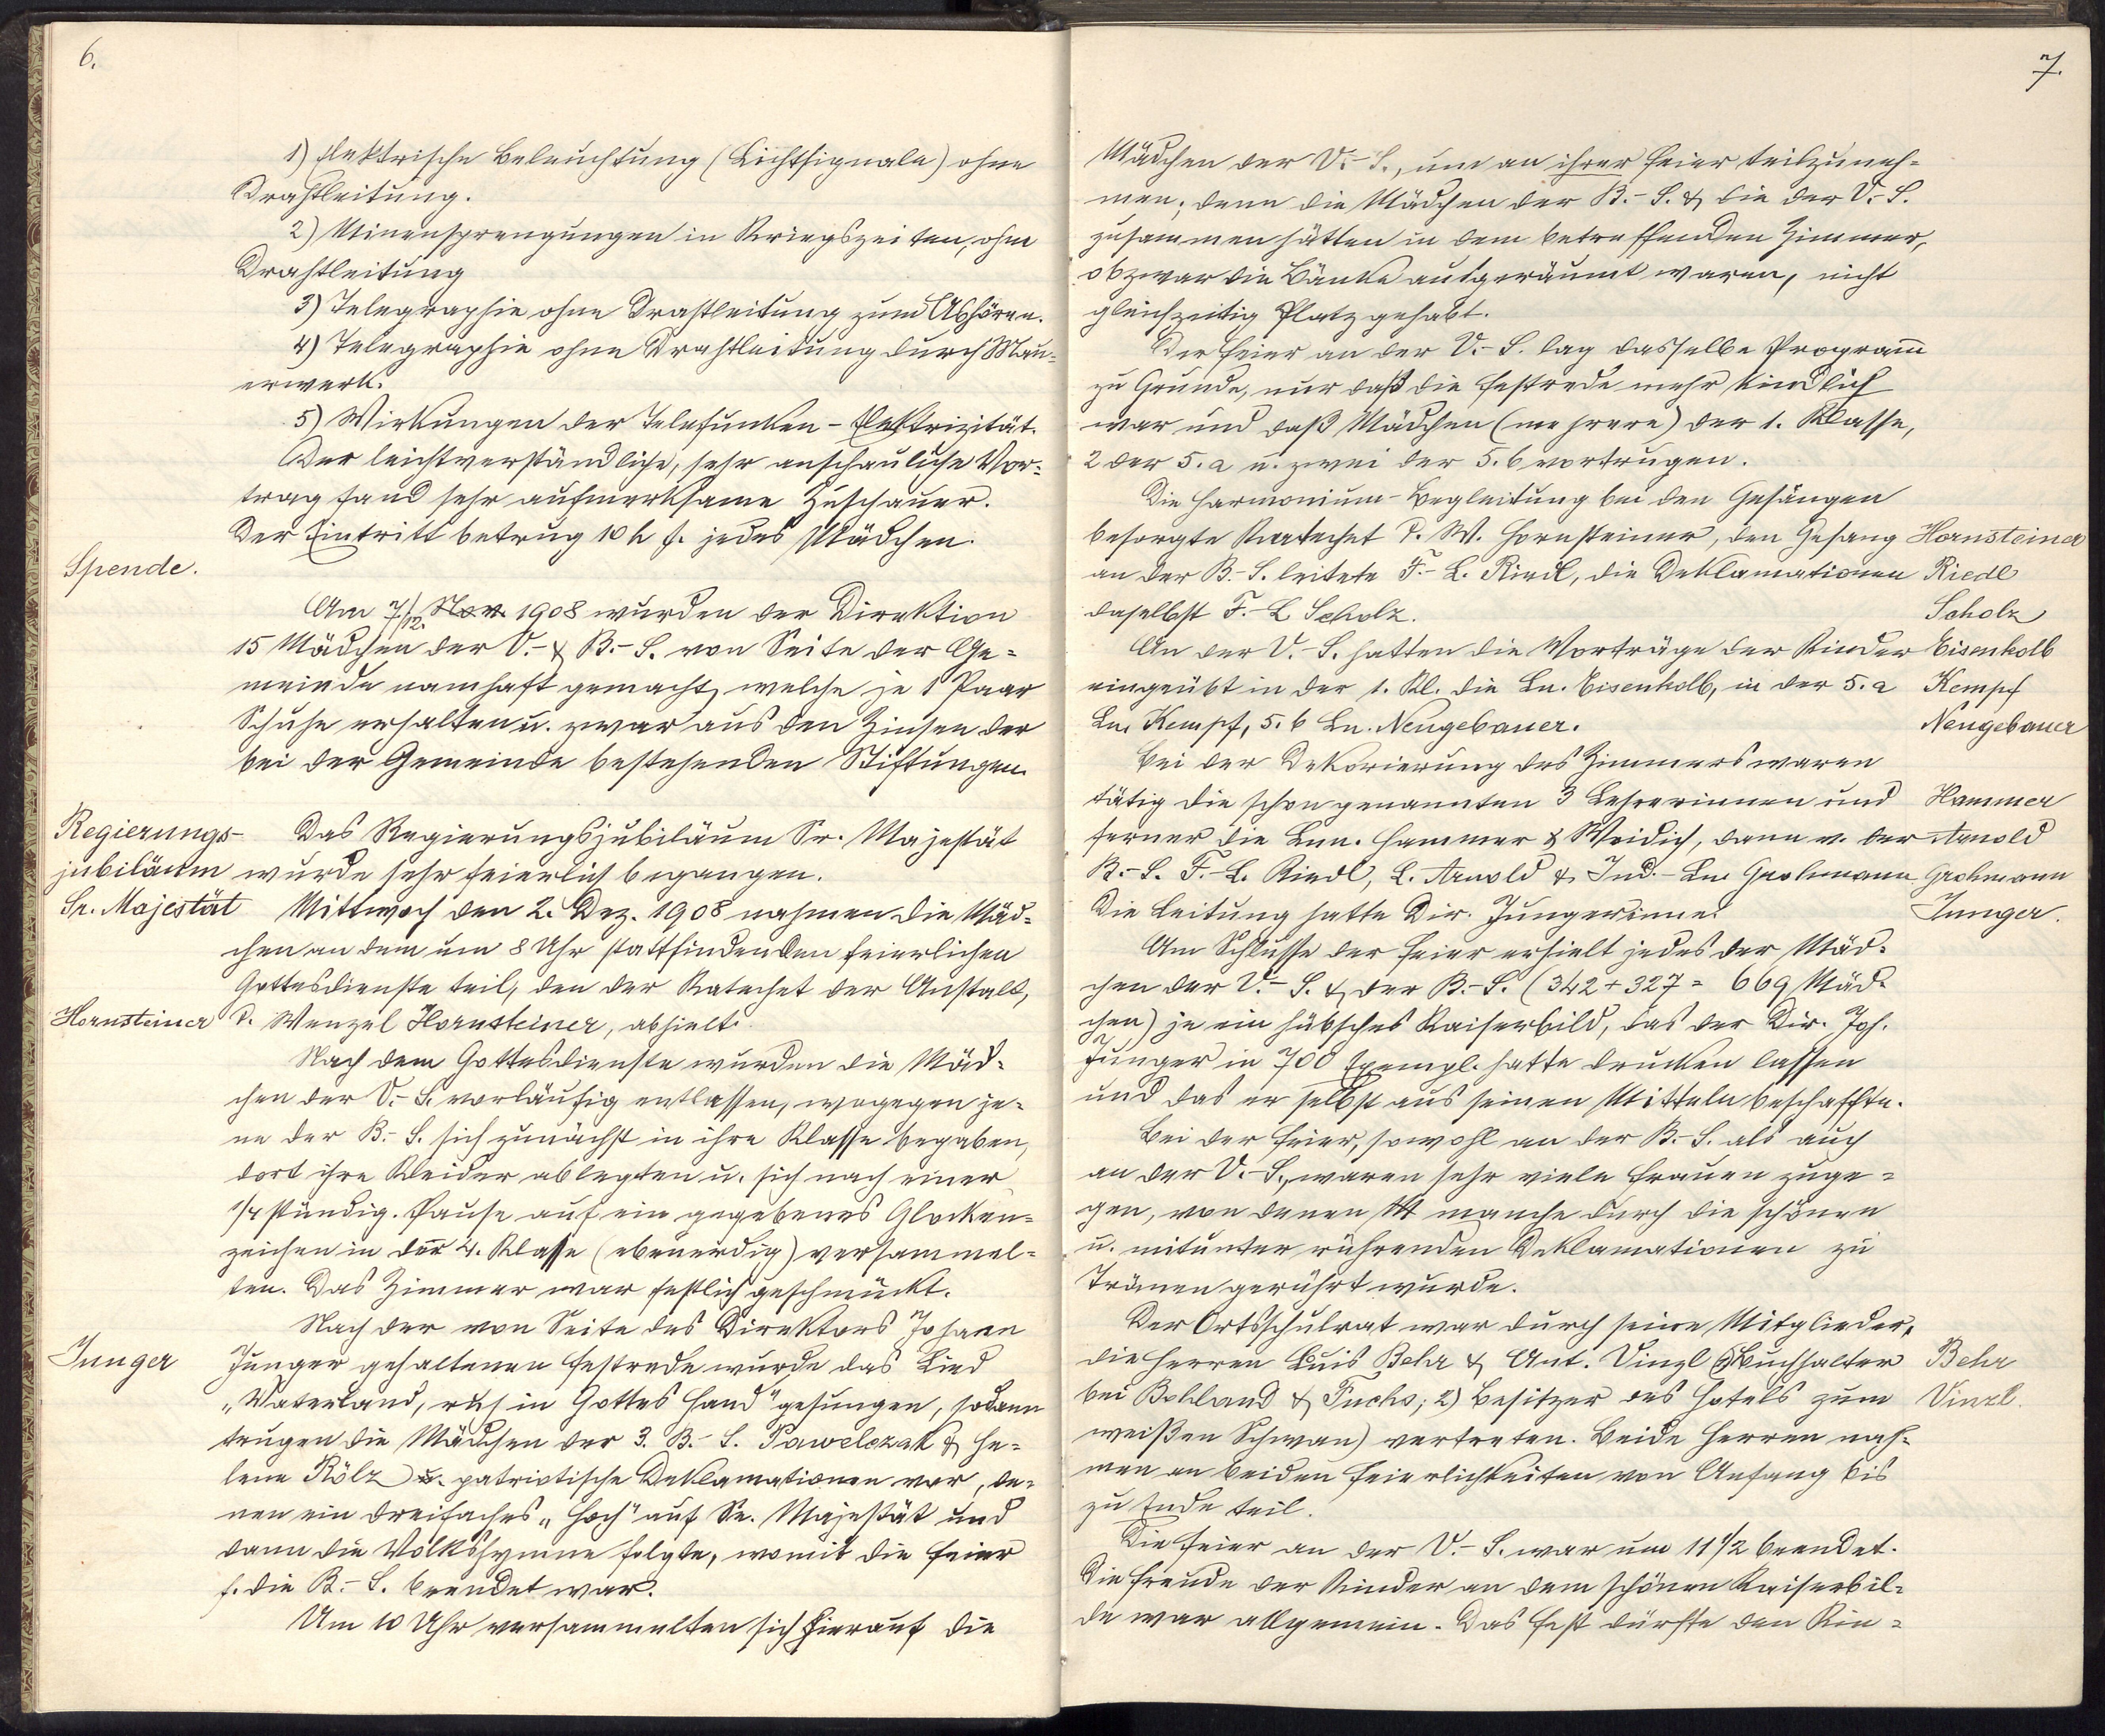 6.
1) Elektrische Beleuchtung (Lichtsignale) ohne
Drahtleitung.
2) Minensprengungen in Kriegszeiten, ohne
Drahtleitung
3) Telegraphie ohne Drahtleitung zum Abhören.
4) Telegraphie ohne Drahtleitung durch Mau-
erwerk.
5) Wirkungen der Telefunken-Elektrizität.
Der leichtverständliche, sehr anschauliche Vor-
trag fand sehr aufmerksame Zuschauer.
Der Eintritt betrug 10 h f. jedes Mädchen.
Spende.
Am 7/12. Nov. 1908 wurden der Direktion
15 Mädchen der V.- & B.-S. von Seite der Ge-
meinde namhaft gemacht, welche je 1 Paar
Schuhe erhalten u. zwar aus den Zinsen der
bei der Gemeinde bestehenden Stiftungen.
Regierungs- Das Regierungsjubiläum Sr. Majestät
jubiläum wurde sehr feierlich begangen.
Sr. Majestät Mittwoch den 2. Dez. 1908 nahmen die Mäd-
chen an dem um 8 Uhr stattfindenden feierlichen
Gottesdienste teil, den der Katechet der Anstalt,
Hornsteiner P. Wenzel Hornsteiner, abhielt.
Nach dem Gottesdienste wurden die Mäd-
chen der V.-S. vorläufig entlassen, wogegen je-
ne der B.-S. sich zunächst in ihre Klasse begaben,
dort ihre Kleider ablegten u. sich nach einer
1/4 stündig. Pause auf ein gegebenes Glocken-
zeichen in der 4. Klasse (ebenerdig) versammel-
ten. Das Zimmer war festlich geschmückt.
Nach der von Seite des Direktors Johann
Junger Junger gehaltenen Festrede wurde das Lied
„Vaterland, ruh in Gottes Hand" gesungen, sodann
trugen die Mädchen der 3. B.-S. Pawelczak & He-
lene Rölz u. patriotische Deklamationen vor, de-
nen ein dreifaches „Hoch" auf Se. Majestät und
dann die Volkshymne folgte, womit die Feier
f. die B.-S. beendet war.
Um 10 Uhr versammelten sich hierauf die
7.
Mädchen der V.-S., um an ihrer Feier teilzuneh-
men; denn die Mädchen der B.-S. & die der V.-S.
zusammen hätten in dem betreffenden Zimmer,
obzwar die Bänke ausgeräumt waren, nicht
gleichzeitig Platz gehabt.
Der Feier an der V.-S. lag dasselbe Programm
zu Grunde, nur daß die Festrede mehr kindlich
war und daß Mädchen (mehrere) der 1. Klasse,
2 der 5.a u. zwei der 5.b vortrugen.
Die Harmonium-Begleitung bei den Gesängen
besorgte Katechet P. W. Hornsteiner, den Gesang Hornsteiner
an der B.-S. leitete F.-L. Riedl, die Deklamationen Riedl
daselbst F.-L Scholz. Scholz
An der V.-S. hatten die Vorträge der Kinder Eisenkolb
eingeübt in der 1. Kl. die Ln. Eisenkolb, in der 5.a Kempf
Ln. Kempf, 5.b Ln. Neugebauer. Neugebauer
Bei der Dekorierung des Zimmers waren
tätig die schon genannten 3 Lehrerinnen und Hammer
ferner die Lnn. Hammer & Weidich, dann v. der Arnold
B.-S. F.-L. Riedl, L. Arnold & Ind.-Ln. Grohmann Grohmann
Die Leitung hatte Dir. Junger inne. Junger.
Am Schlusse der Feier erhielt jedes der Mäd-
chen der V.-S. & der B.-S. (342 + 327 = 669 Mäd-
chen) je ein hübsches Kaiserbild, das der Dir. Joh.
Junger in 700 Exempl. hatte drucken lassen
und das er selbst aus seinen Mitteln beschaffte.
Bei der Feier, sowohl an der B.-S. als auch
an der V.-S., waren sehr viele Frauen zuge-
gen, von denen manche durch die schönen
u. mitunter rührenden Deklamationen zu
Tränen gerührt wurde.
Der Ortsschulrat war durch seine Mitglieder,
die Herren Luis Behr & Ant. Vinzl (Buchhalter Behr
bei Bohland & Fuchs; 2) Besitzer des Hotels zum Vinzl.
weißen Schwan) vertreten. Beide Herren nah-
men an beiden Feierlichkeiten von Anfang bis
zu Ende teil.
Die Feier an der V.-S. war um 11 1/2 beendet.
Die Freude der Kinder an dem schönen Kaiserbil-
de war allgemein. Das Fest dürfte den Kin-